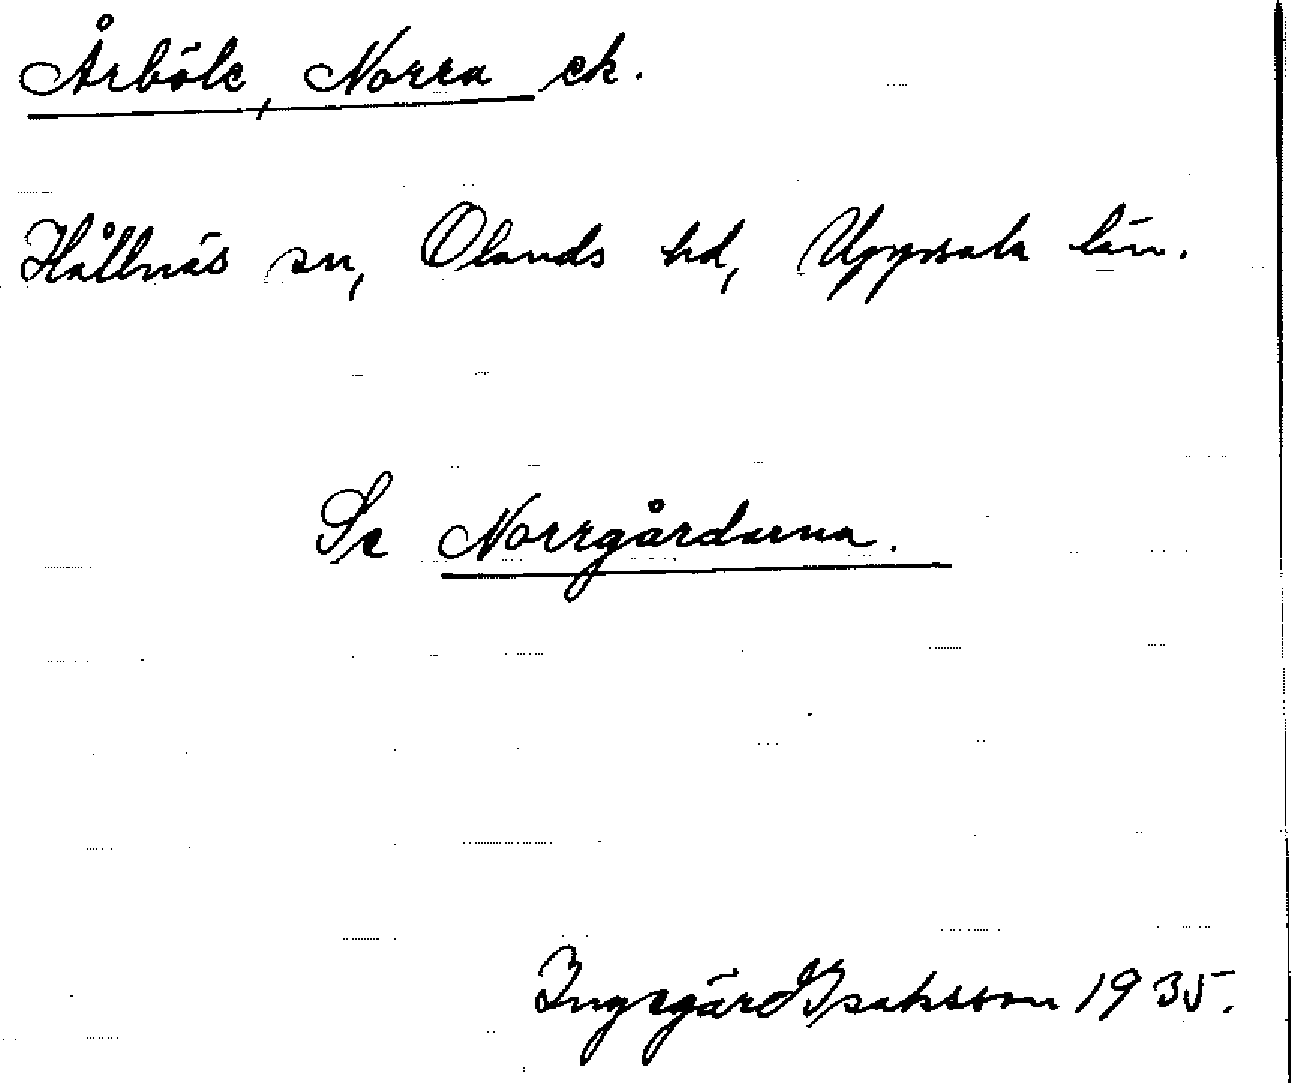 Årböle, Norra ek.
Hållnäs sn, Olands hd, Uppsala län.
Se Norrgårdarna.
Ingegärd Isaksson 1935.